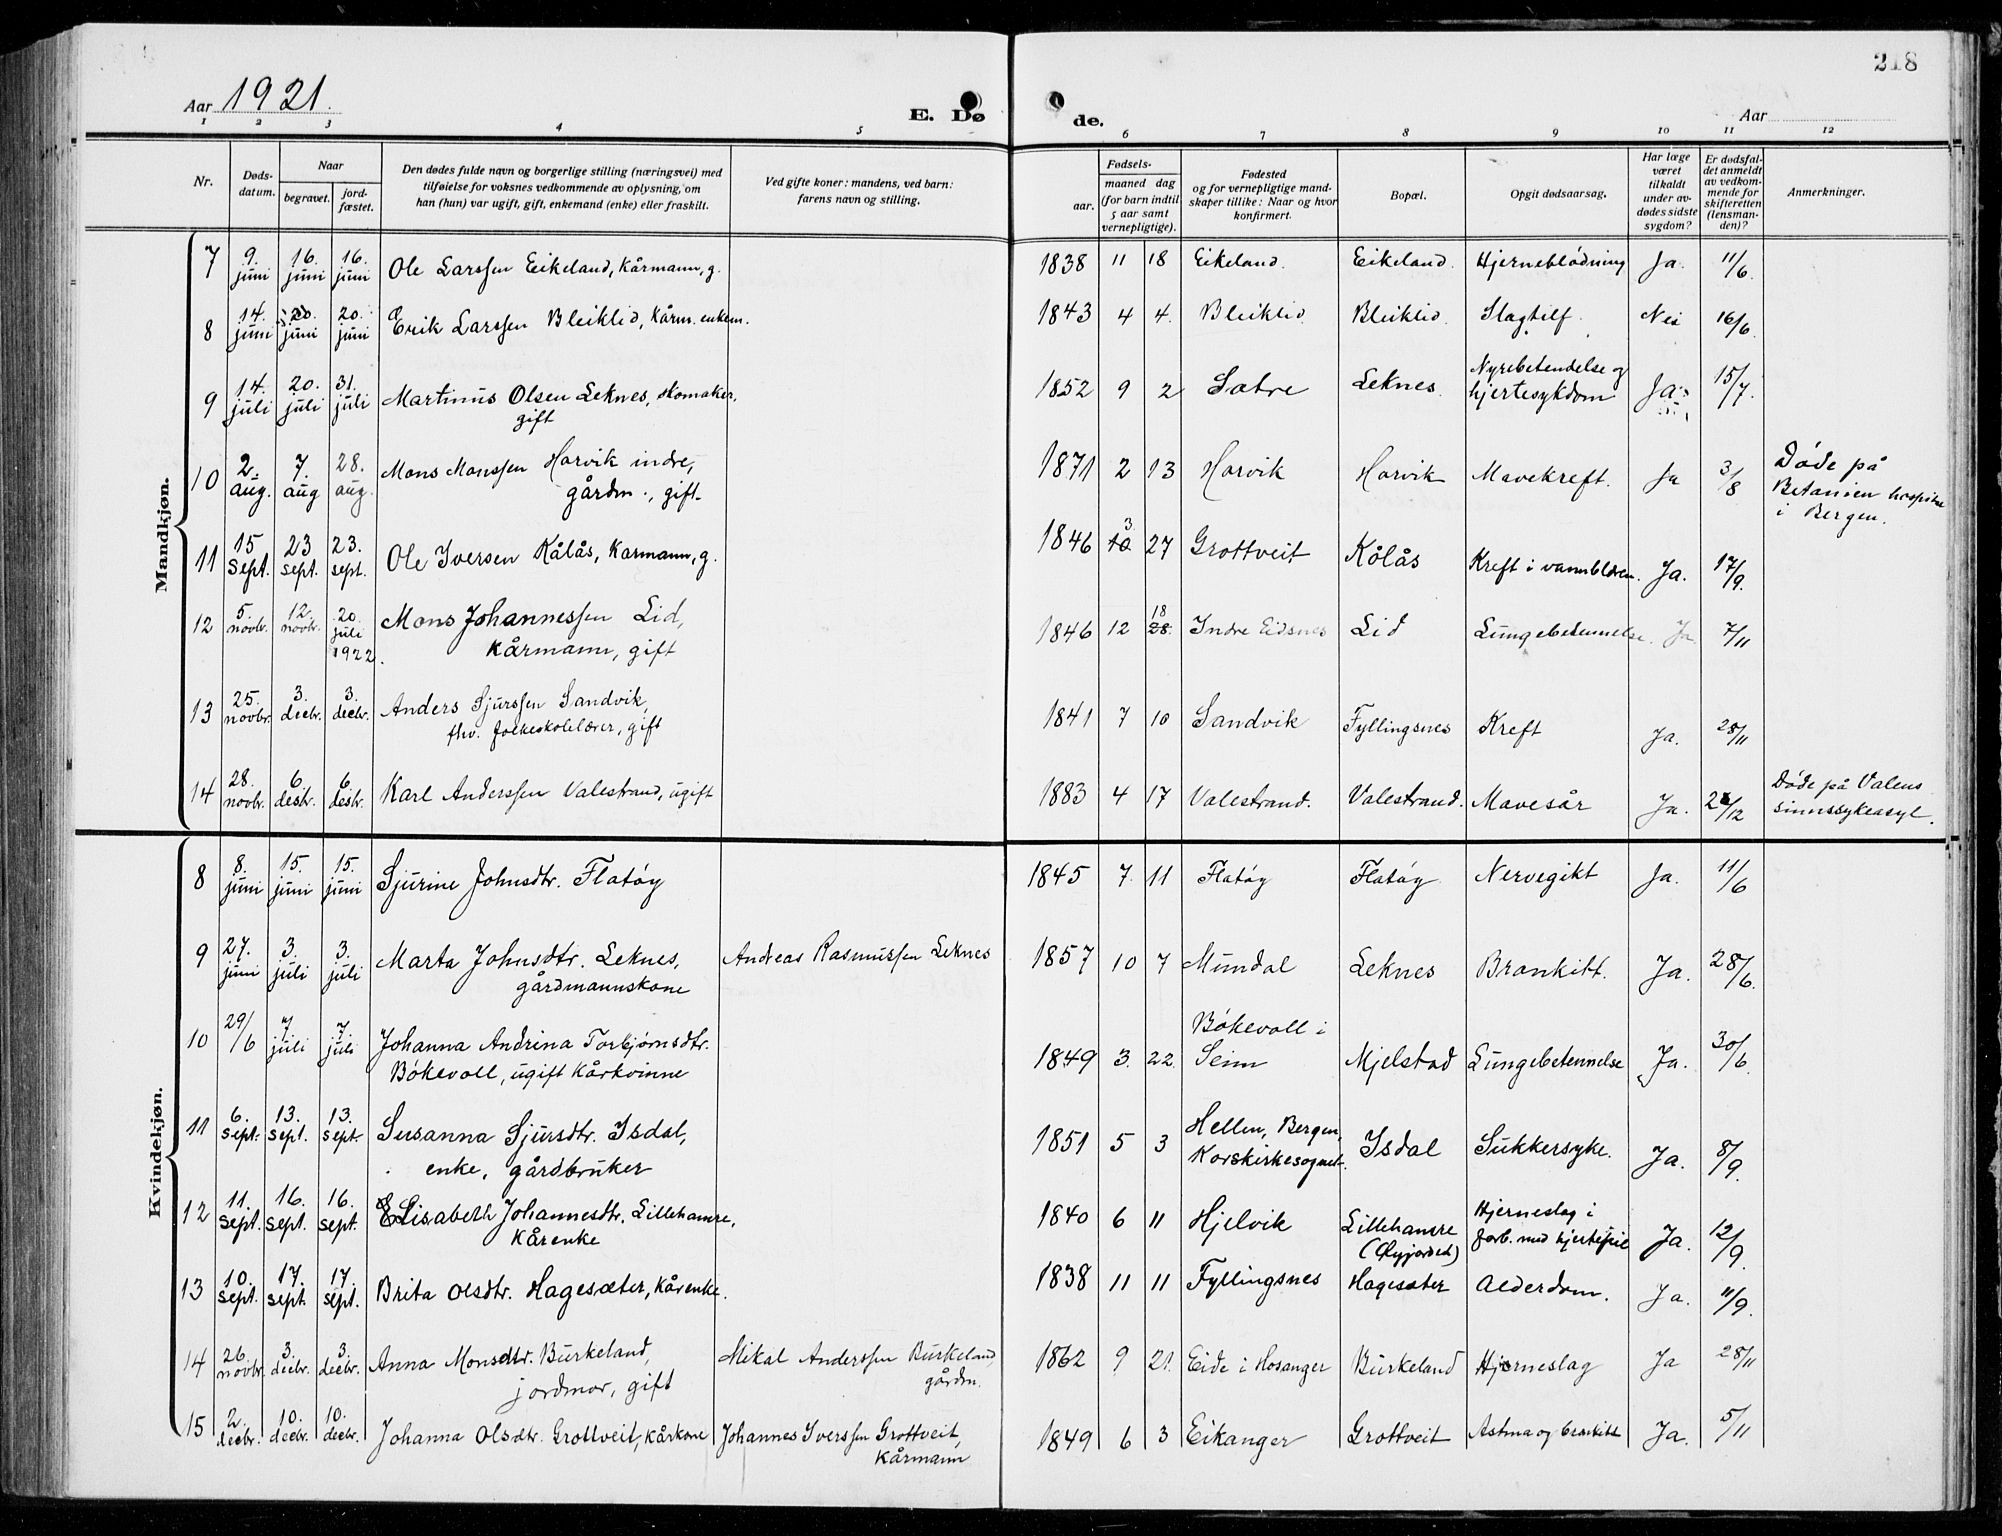 218
Aar 1921.
E. Døde.
Aar
1 2 3 4 5 6 7 8 9 10 11 12
Nr.
Døds-datum.
Naar
begravet.
jord-fæstet.
Den dødes fulde navn og borgerlige stilling (næringsvei) med
tilføielse for voksnes vedkommende av oplysning, om
han (hun) var ugift, gift, enkemand (enke) eller fraskilt.
Ved gifte koner: mandens, ved barn:
farens navn og stilling.
Fødsels-
aar. maaned dag
(for barn indtil
5 aar samt
vernepligtige).
Fødested
og for vernepligtige mand-
skaper tillike: Naar og hvor
konfirmert.
Bopæl.
Opgit dødsaarsag.
Har læge
været
tilkaldt
under av-
dødes sidste
sygdom?
Er dødsfal-
det anmeldt
av vedkom-
mende for
skifteretten
(lensman-
den)?
Anmerkninger.
Mandkjøn.
7 9. juni 16. juni 16. juni Ole Larssen Eikeland, kårmann, g. 1838 11 18 Eikeland. Eikeland. Hjerneblødning Ja. 11/6.
8 14. juni 20. juni 20. juni Erik Larssen Bleiklid, kårm. enkem. 1843 4 4. Bleiklid. Bleiklid. Slagtilf. Nei 16/6.
9 14. juli 20. juli 31. juli Martinus Olsen Leknes, skomaker, gift 1852 9 2 Sætre Leknes. Nyrebetendelse og hjertesykdom Ja. 15/7.
10 2. aug. 7. aug 28. aug. Mons Monssen Horvik indre, gårdm., gift. 1871 2 13 Horvik Horvik Mavekreft. Ja 3/8 Døde på Betanien hospital i Bergen.
11 15 Sept. 23 sept. 23. sept. Ole Iversen Kålås, Karmann, g. 1846 3 10 27 Grottveit Kålås Kreft i vannblæren. Ja. 17/9.
12 5. novbr. 12. novbr. 20. juli 1922. Mons Johannessen Lid, kårmann, gift 1846 12 18 28. Indre Eidsnes Lid Lungebetennelse. Ja 7/11
13 25. novbr. 3. decbr. 3. decbr. Anders Sjurssen Sandvik, fhv. folkeskolelærer, gift 1841 7 10 Sandvik Fyllingsnes Kreft Ja. 28/11
14 28. novbr. 6. desbr. 6. desbr. Karl Anderssen Valestrand, ugift 1883 4 17 Valestrand. Valestrand. Mavesår Ja. /12 Døde på Valens sinnssykeasyl.
Kvindekjøn.
8 8. juni 15. juni 15. juni Sjurine Johnsdtr. Flatøy 1845 7. 11 Flatøy Flatøy Nervegikt Ja. 11/6
9 27. juni 3. juli 3. juli Marta Johnsdtr. Leknes, gårdmannskone Andreas Rasmussen Leknes 1857 10 7 Mundal Leknes Bronkitt. Ja. 28/6.
10 29/6 7 juli 7 juli Johanna Andrina Torbjørnsdtr. Bökevoll, ugift kårkvinne 1849 3. 22. Bökevoll i Seim Mjelstad Lungebetennelse Ja. 30/6.
11 6. sept. 13. sept. 13. sept. Susanna Sjursdtr. Isdal, enke, gårdbruker 1851 5 3 Hellen, Bergen, Korskirkesognet. Isdal Sukkersyke. Ja. 8/9.
12 11. sept. 16. sept. 16. sept. Elisabeth Johannesdtr. Lillehamre, kårenke 1840 6 11 Hjelvik Lillehamre (Øyjordet) Hjerneslag i forb. med hjertefeil Ja. 12/9.
13 10. sept. 17. sept. 17. sept. Brita Olsdtr. Hagesæter, kårenke. 1838 11 11 Fyllingsnes Hagesæter Alderdom. Ja. 11/9.
14 26. novbr. 3. decbr. 3. decbr. Anna Monsdtr. Burkeland, jordmor, gift Mikal Anderssen Burkeland, gårdm. 1862 9 21. Eide i Hosanger Burkeland Hjerneslag Ja 28/11
15 2. decbr. 10. decbr. 10. decbr. Johanna Olsdtr. Grottveit, kårkone Johannes Iverssen Grottveit, kårmann 1849 6 3 Eikanger Grottveit Astma og bronkitt Ja. 5/11